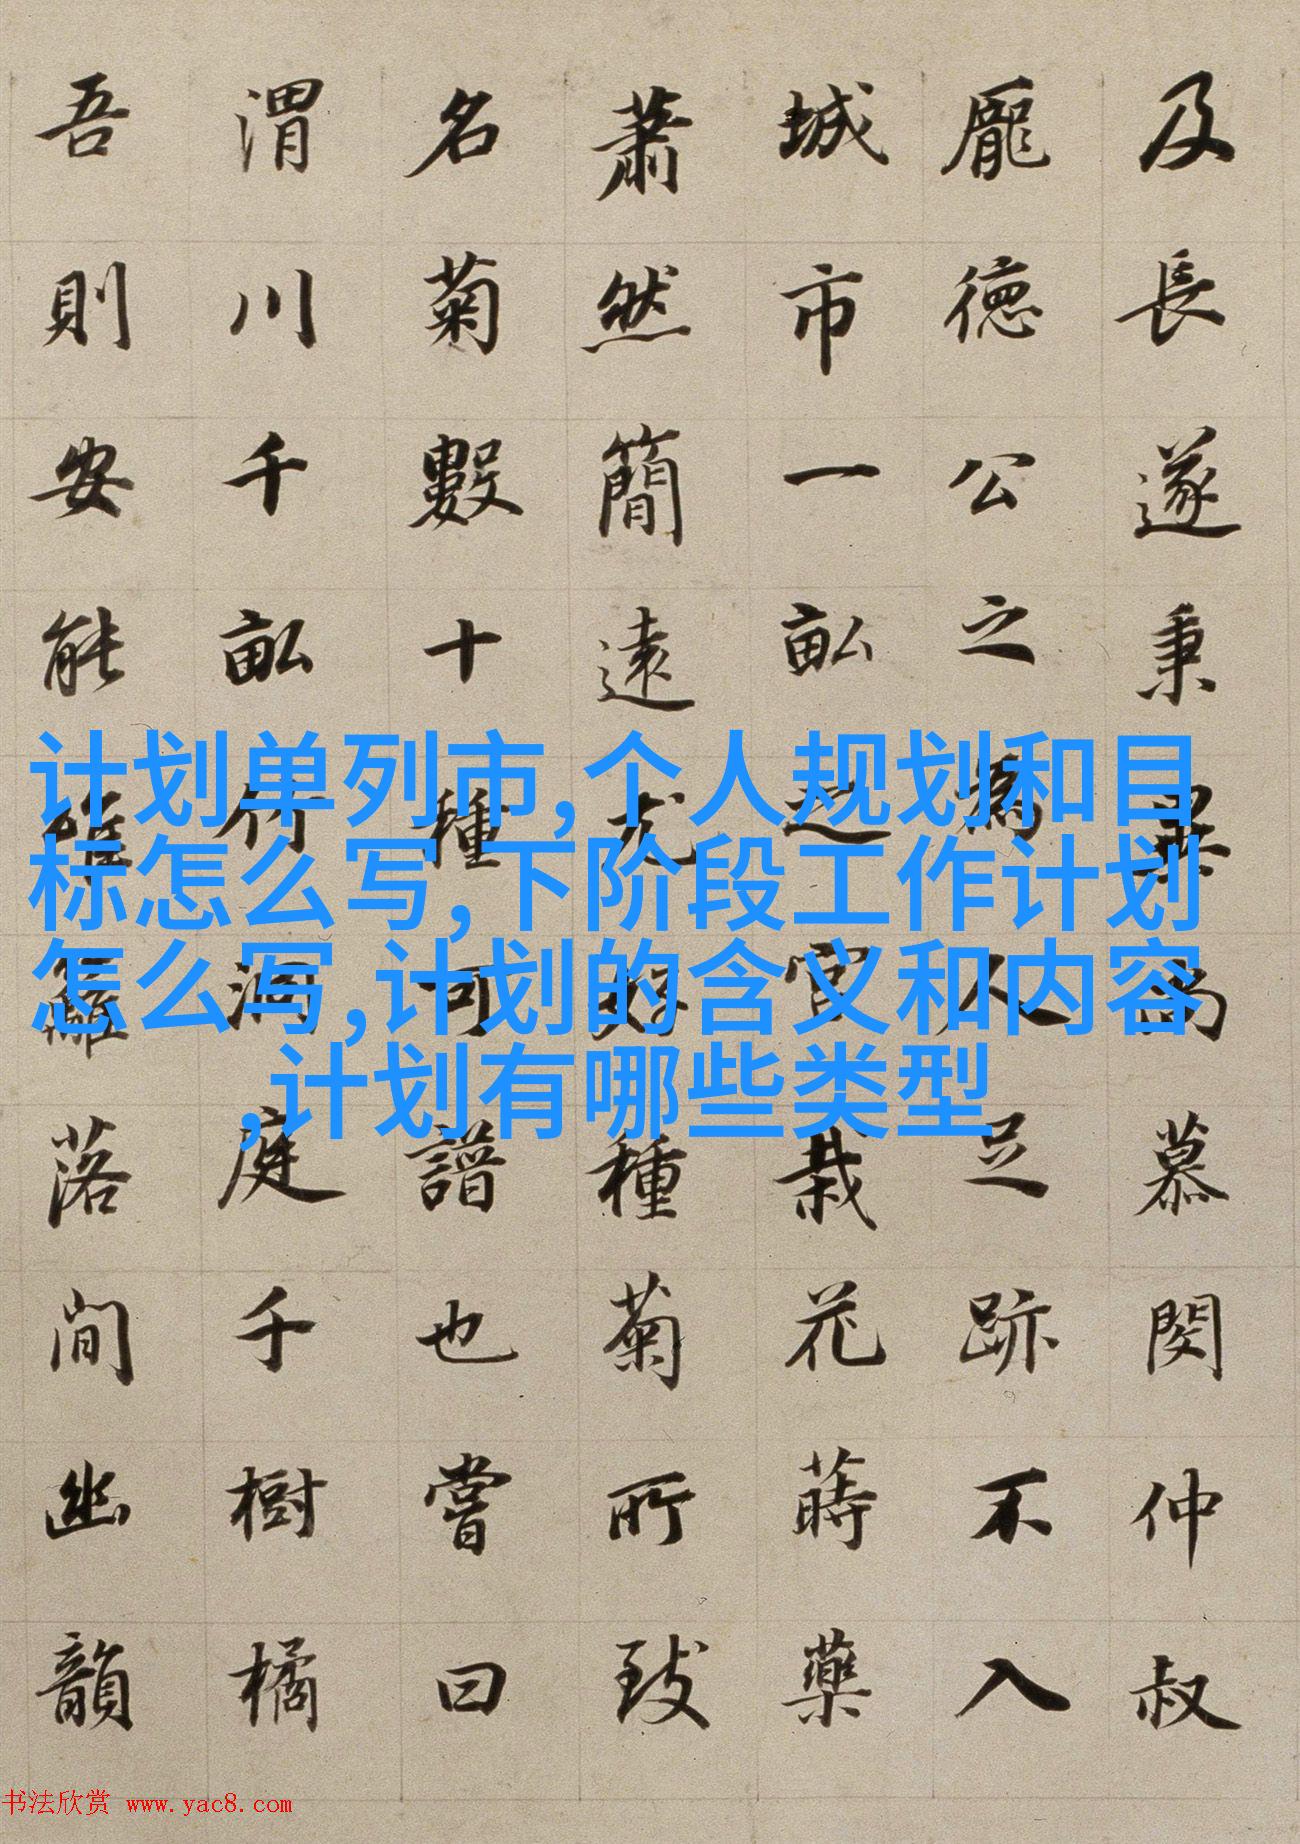 及長遂秉尚慕閔仲叔
龐德公之為人足跡不入
城市一畝之宮栽花蒔藥
蕭然簡遠尤好種菊所致
名菊數十種可譜也嘗曰
渭川千畝竹洞庭千樹橘
吾則安能籬落間幽韻
计划单列市,个人规划和目
标怎么写,下阶段工作计划
怎么写,计划的含义和内容
,计划有哪些类型
书法欣赏 www.yac8.com